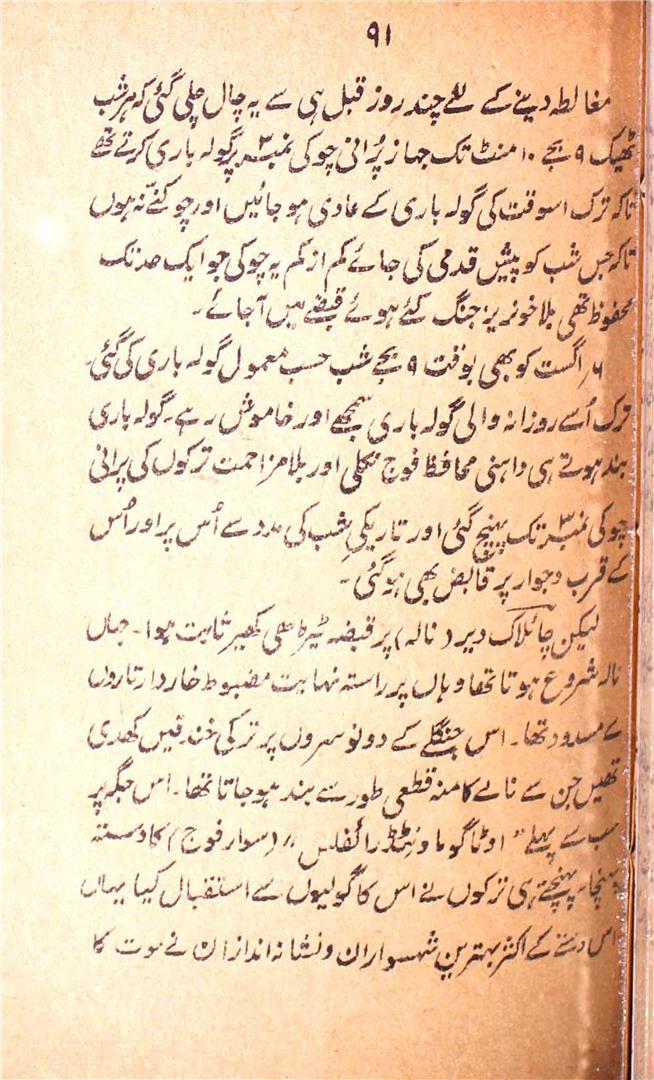 ۹۱
مغالطہ دینے کے لئے چند روز قبل ہی سے یہ چال چلی گئی کہ ہر شب
ٹھیک ۹ بجے ۱۰ منٹ تک جہاز پُرانی چوکی نمبر ۳ پر گولہ باری کرتے تھے
تاکہ ترک اسوقت کی گولہ باری کے عادی ہو جائیں اور چوکنّے نہ ہوں
تاکہ جس شب کو پیش قدمی کی جائے کم از کم یہ چوکی جو ایک حد تک
محفوظ تھی بلا خونریز جنگ کئے ہوئے قبضے میں آجائے۔
۶؍ اگست کو بھی بوقت ۹ بجے شب حسب معمول گولہ باری کی گئی۔
ترک اُسے روزانہ والی گولہ باری سمجھے اور خاموش رہے۔ گولہ باری
بند ہوتے ہی داہنی محافظ فوج نکلی اور بلا مزاحمت ترکوں کی پرانی
چوکی نمبر ۳ تک پہنچ گئی اور تاریکیِ شب کی مدد سے اُس پر اور اُس
کے قرب و جوار پر قابض بھی ہوگئی۔
لیکن چائلاک دیر (نالہ) پر قبضہ ٹیڑھی کھیر ثابت ہوا۔ جہاں
نالہ شروع ہوتا تھا وہاں پر راستہ نہایت مضبوط خاردار تاروں
سے مسدود تھا۔ اس جنگلے کے دونو سروں پر ترکی خندقیں کھدی
تھیں جن سے نالے کا منہ قطعی طور سے بند ہو جاتا تھا۔ اس جگہ پر
سب سے پہلے "اوٹاگو ماونٹڈ رائفلس" (سوار فوج) کا دستہ
پہنچا۔ پہنچتے ہی ترکوں نے اس کا گولیوں سے استقبال کیا یہاں
اس دستے کے اکثر بہترین شہسواران و نشانہ اندازان نے موت کا